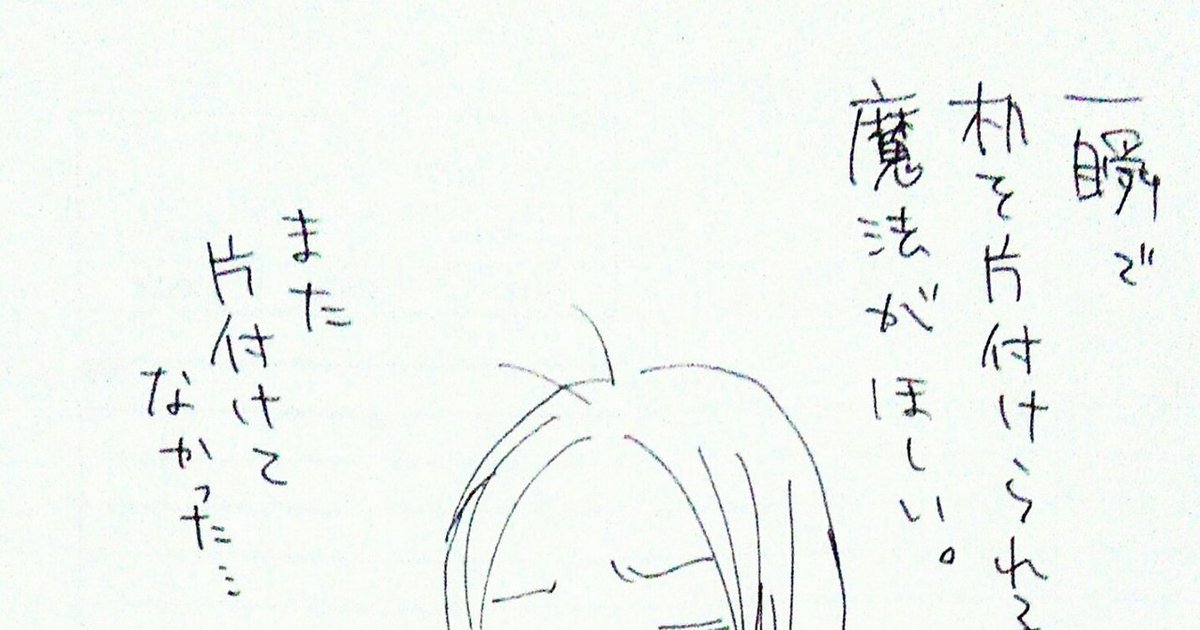 一瞬で
机を片付けられる
魔法がほしい。
また
片付けて
なかった…